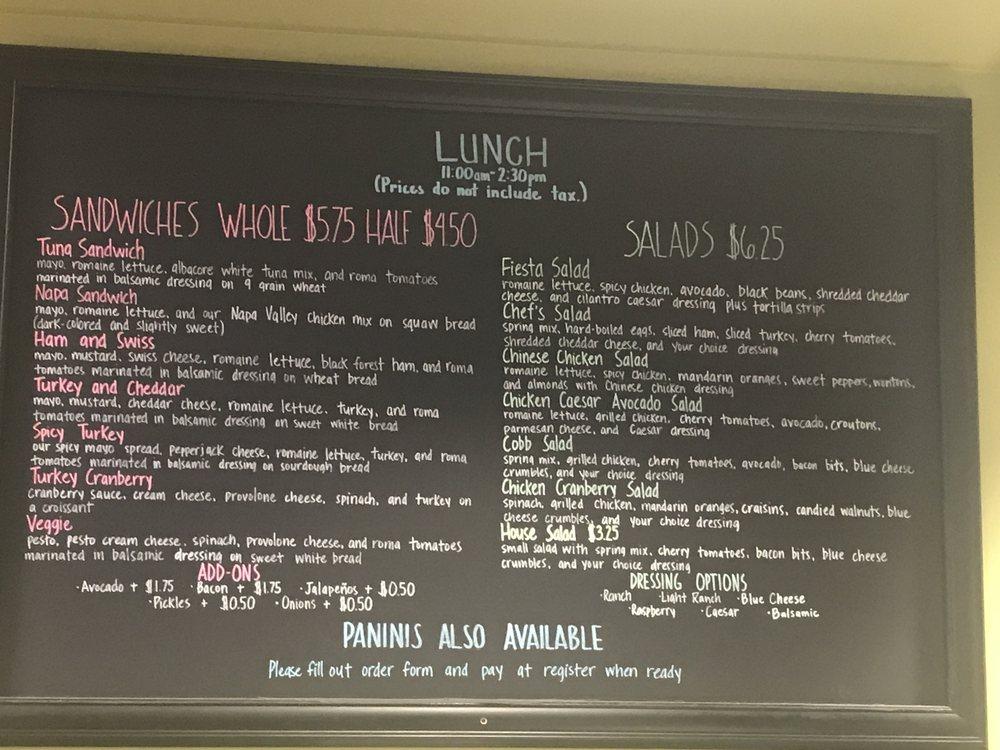 LUNCH
11:00am-2:30pm
(Prices do not include tax.)
SANDWICHES WHOLE $5.75 HALF $4.50
Tuna Sandwich
mayo, romaine lettuce, albacore white tuna mix, and roma tomatoes
marinated in balsamic dressing on 9 grain wheat
Napa Sandwich
mayo, romaine lettuce, and our Napa Valley chicken mix on squaw bread
(dark-colored and slightly sweet)
Ham and Swiss
mayo, mustard, swiss cheese, romaine lettuce, black forest ham, and roma
tomatoes marinated in balsamic dressing on wheat bread
Turkey and Cheddar
mayo, mustard, cheddar cheese, romaine lettuce, turkey, and roma
tomatoes marinated in balsamic dressing on sweet white bread
Spicy Turkey
our spicy mayo spread, pepperjack cheese, romaine lettuce, turkey, and roma
tomatoes marinated in balsamic dressing on sourdough bread
Turkey Cranberry
cranberry sauce, cream cheese, provolone cheese, spinach, and turkey on
a croissant
Veggie
pesto, pesto cream cheese, spinach, provolone cheese, and roma tomatoes
marinated in balsamic dressing on sweet white bread
ADD-ONS
·Avocado + $1.75 ·Bacon + $1.75 ·Jalapeños + $0.50
·Pickles + $0.50 ·Onions + $0.50
SALADS $6.25
Fiesta Salad
romaine lettuce, spicy chicken, avocado, black beans, shredded cheddar
cheese, and cilantro caesar dressing plus tortilla strips
Chef's Salad
spring mix, hard-boiled eggs, sliced ham, sliced turkey, cherry tomatoes,
shredded cheddar cheese, and your choice dressing
Chinese Chicken Salad
romaine lettuce, spicy chicken, mandarin oranges, sweet peppers, wontons,
and almonds with Chinese chicken dressing
Chicken Caesar Avocado Salad
romaine lettuce, grilled chicken, cherry tomatoes, avocado, croutons,
parmesan cheese, and Caesar dressing
Cobb Salad
spring mix, grilled chicken, cherry tomatoes, avocado, bacon bits, blue cheese
crumbles, and your choice dressing
Chicken Cranberry Salad
spinach, grilled chicken, mandarin oranges, craisins, candied walnuts, blue
cheese crumbles, and your choice dressing
House Salad $3.25
small salad with spring mix, cherry tomatoes, bacon bits, blue cheese
crumbles, and your choice dressing
DRESSING OPTIONS
·Ranch ·Light Ranch ·Blue Cheese
·Raspberry ·Caesar ·Balsamic
PANINIS ALSO AVAILABLE
Please fill out order form and pay at register when ready